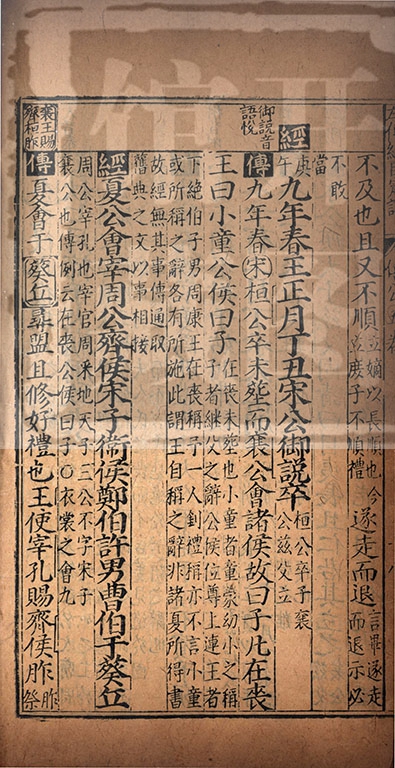 不及也且又不順立嫡以長順也今立庶子不順禮遂走而退言畢遂走而退示必
不敢當
御說音語悅
經庚午九年春王正月丁丑宋公御說卒桓公卒子襄公茲父立
傳九年春宋桓公卒未塟而襄公會諸侯故曰子凡在喪
王曰小童公侯曰子在喪未塟也小童者童蒙幼小之稱子者繼父之辭公侯位尊上連王者
下絕伯子男周康王在喪稱予一人釗禮稱亦不言小童
或所稱之辭各有所施此謂王自稱之辭非諸夏所得書
故經無其事傳通取
舊典之文以事相接
經夏公會宰周公齊侯宋子衛侯鄭伯許男曹伯于葵丘
周公宰孔也宰官周采地天子三公不字宋子
襄公也傳例云在喪公侯曰子○衣裳之會九
襄王賜齊桓胙
傳夏會于葵丘尋盟且修好禮也王使宰孔賜齊侯胙胙祭